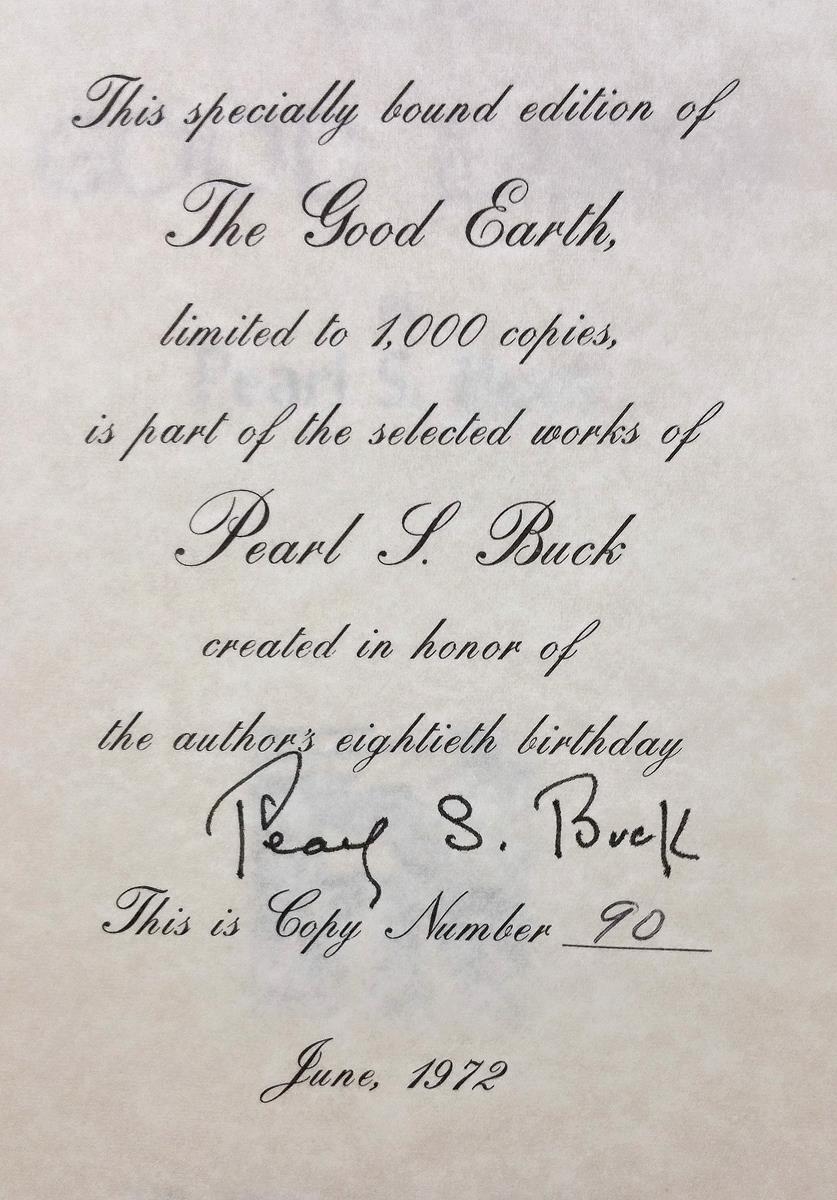 This specially bound edition of
The Good Earth,
limited to 1,000 copies,
is part of the selected works of
Pearl S. Buck
created in honor of
the author's eightieth birthday
Pearl S. Buck
This is Copy Number 90
June, 1972